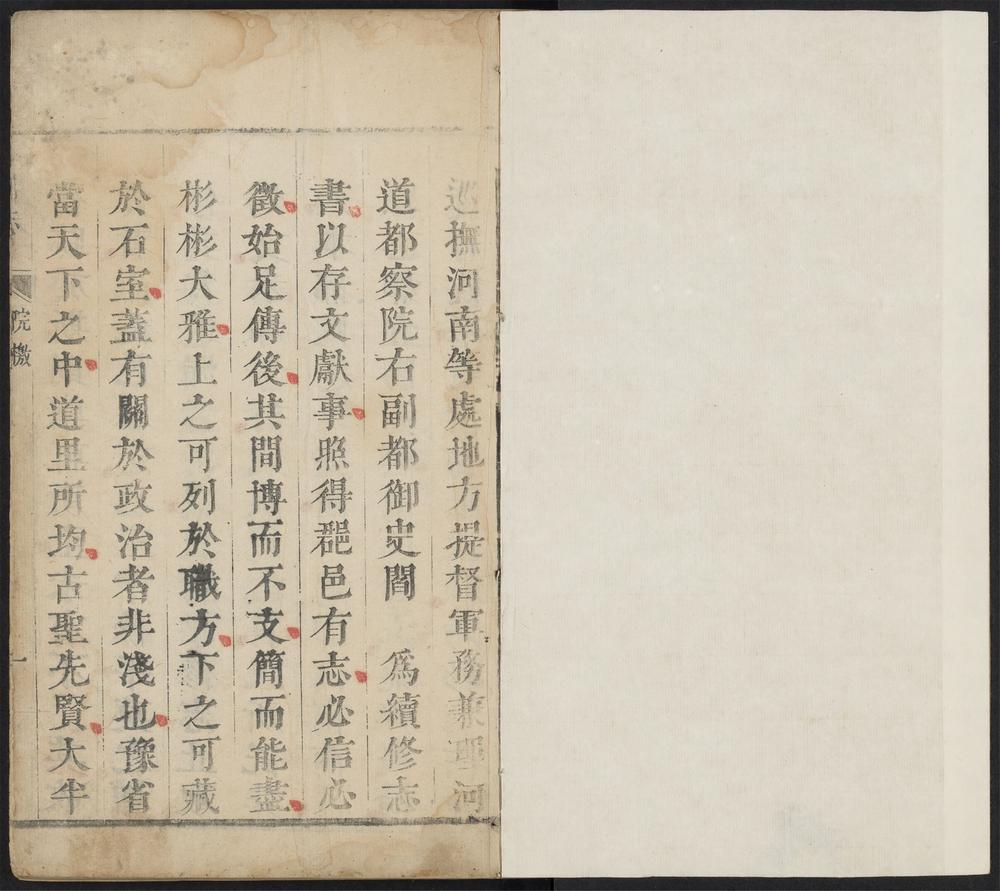 巡撫河南等處地方提督軍務兼理河
道都察院右副都御史閻　為續修志
書以存文獻事照得郡邑有志必信必
徵始足傳後其間博而不支簡而能盡
彬彬大雅上之可列於職方下之可藏
於石室蓋有關於政治者非淺也豫省
當天下之中道里所均古聖先賢大半
院檄
一